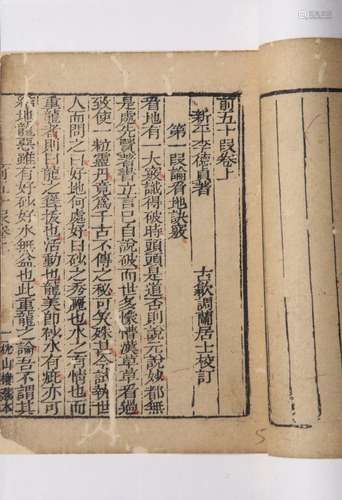 前五十段卷上
新平李德貞著　古歙調蘭居士校訂
第一段論看地訣竅
看地有一大竅識得破時頭頭是道否則說元說妙都無
是處先賢著書立言已自說破而世多懷憒草草看過
致使一粒靈丹竟為千古不傳之秘可笑殊甚今試執世
人而問之曰好地何處好曰砂之秀麗也水之有情也而
重龍者則曰龍之蓬拔也活動也龍美即砂水有疵亦可
龍惡雖有好砂好水無益也此重龍之論吾不謂其
前五十段卷上
一 枕山樓藏本
5